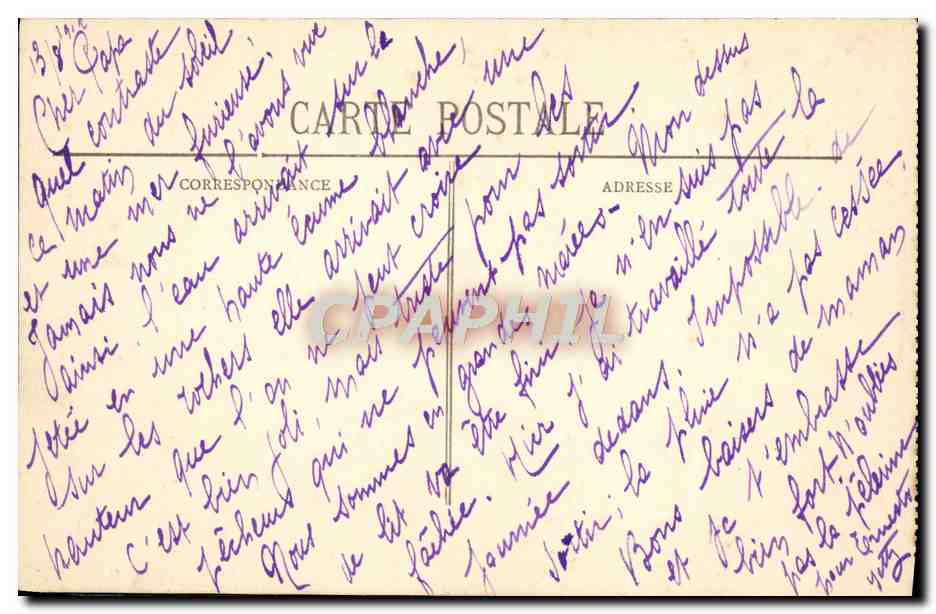 13/8 1912
Cher Papa
Quel contraste
ce matin du soleil
et une mer furieuse,
Jamais nous ne l'avons vue
ainsi. l'eau arrivait sur la
jetée en une haute écume blanche,
sur les rochers elle arrivait avec une
hauteur que l'on ne peut croire
C'est bien joli, mais triste pour les
pêcheurs qui ne peuvent pas sortir
Nous sommes en grandes marées - Mon dessus
de lit va être fini je n'en suis pas
fâchée. Hier j'ai travaillé toute la
journée dedans. Impossible de
sortir, la pluie n'a pas cessée.
Bons baisers de maman
et je t'embrasse
bien fort N'oublies
pas la pélerine
pour Ernest
CARTE POSTALE
CORRESPONDANCE
ADRESSE
CPAPHIL